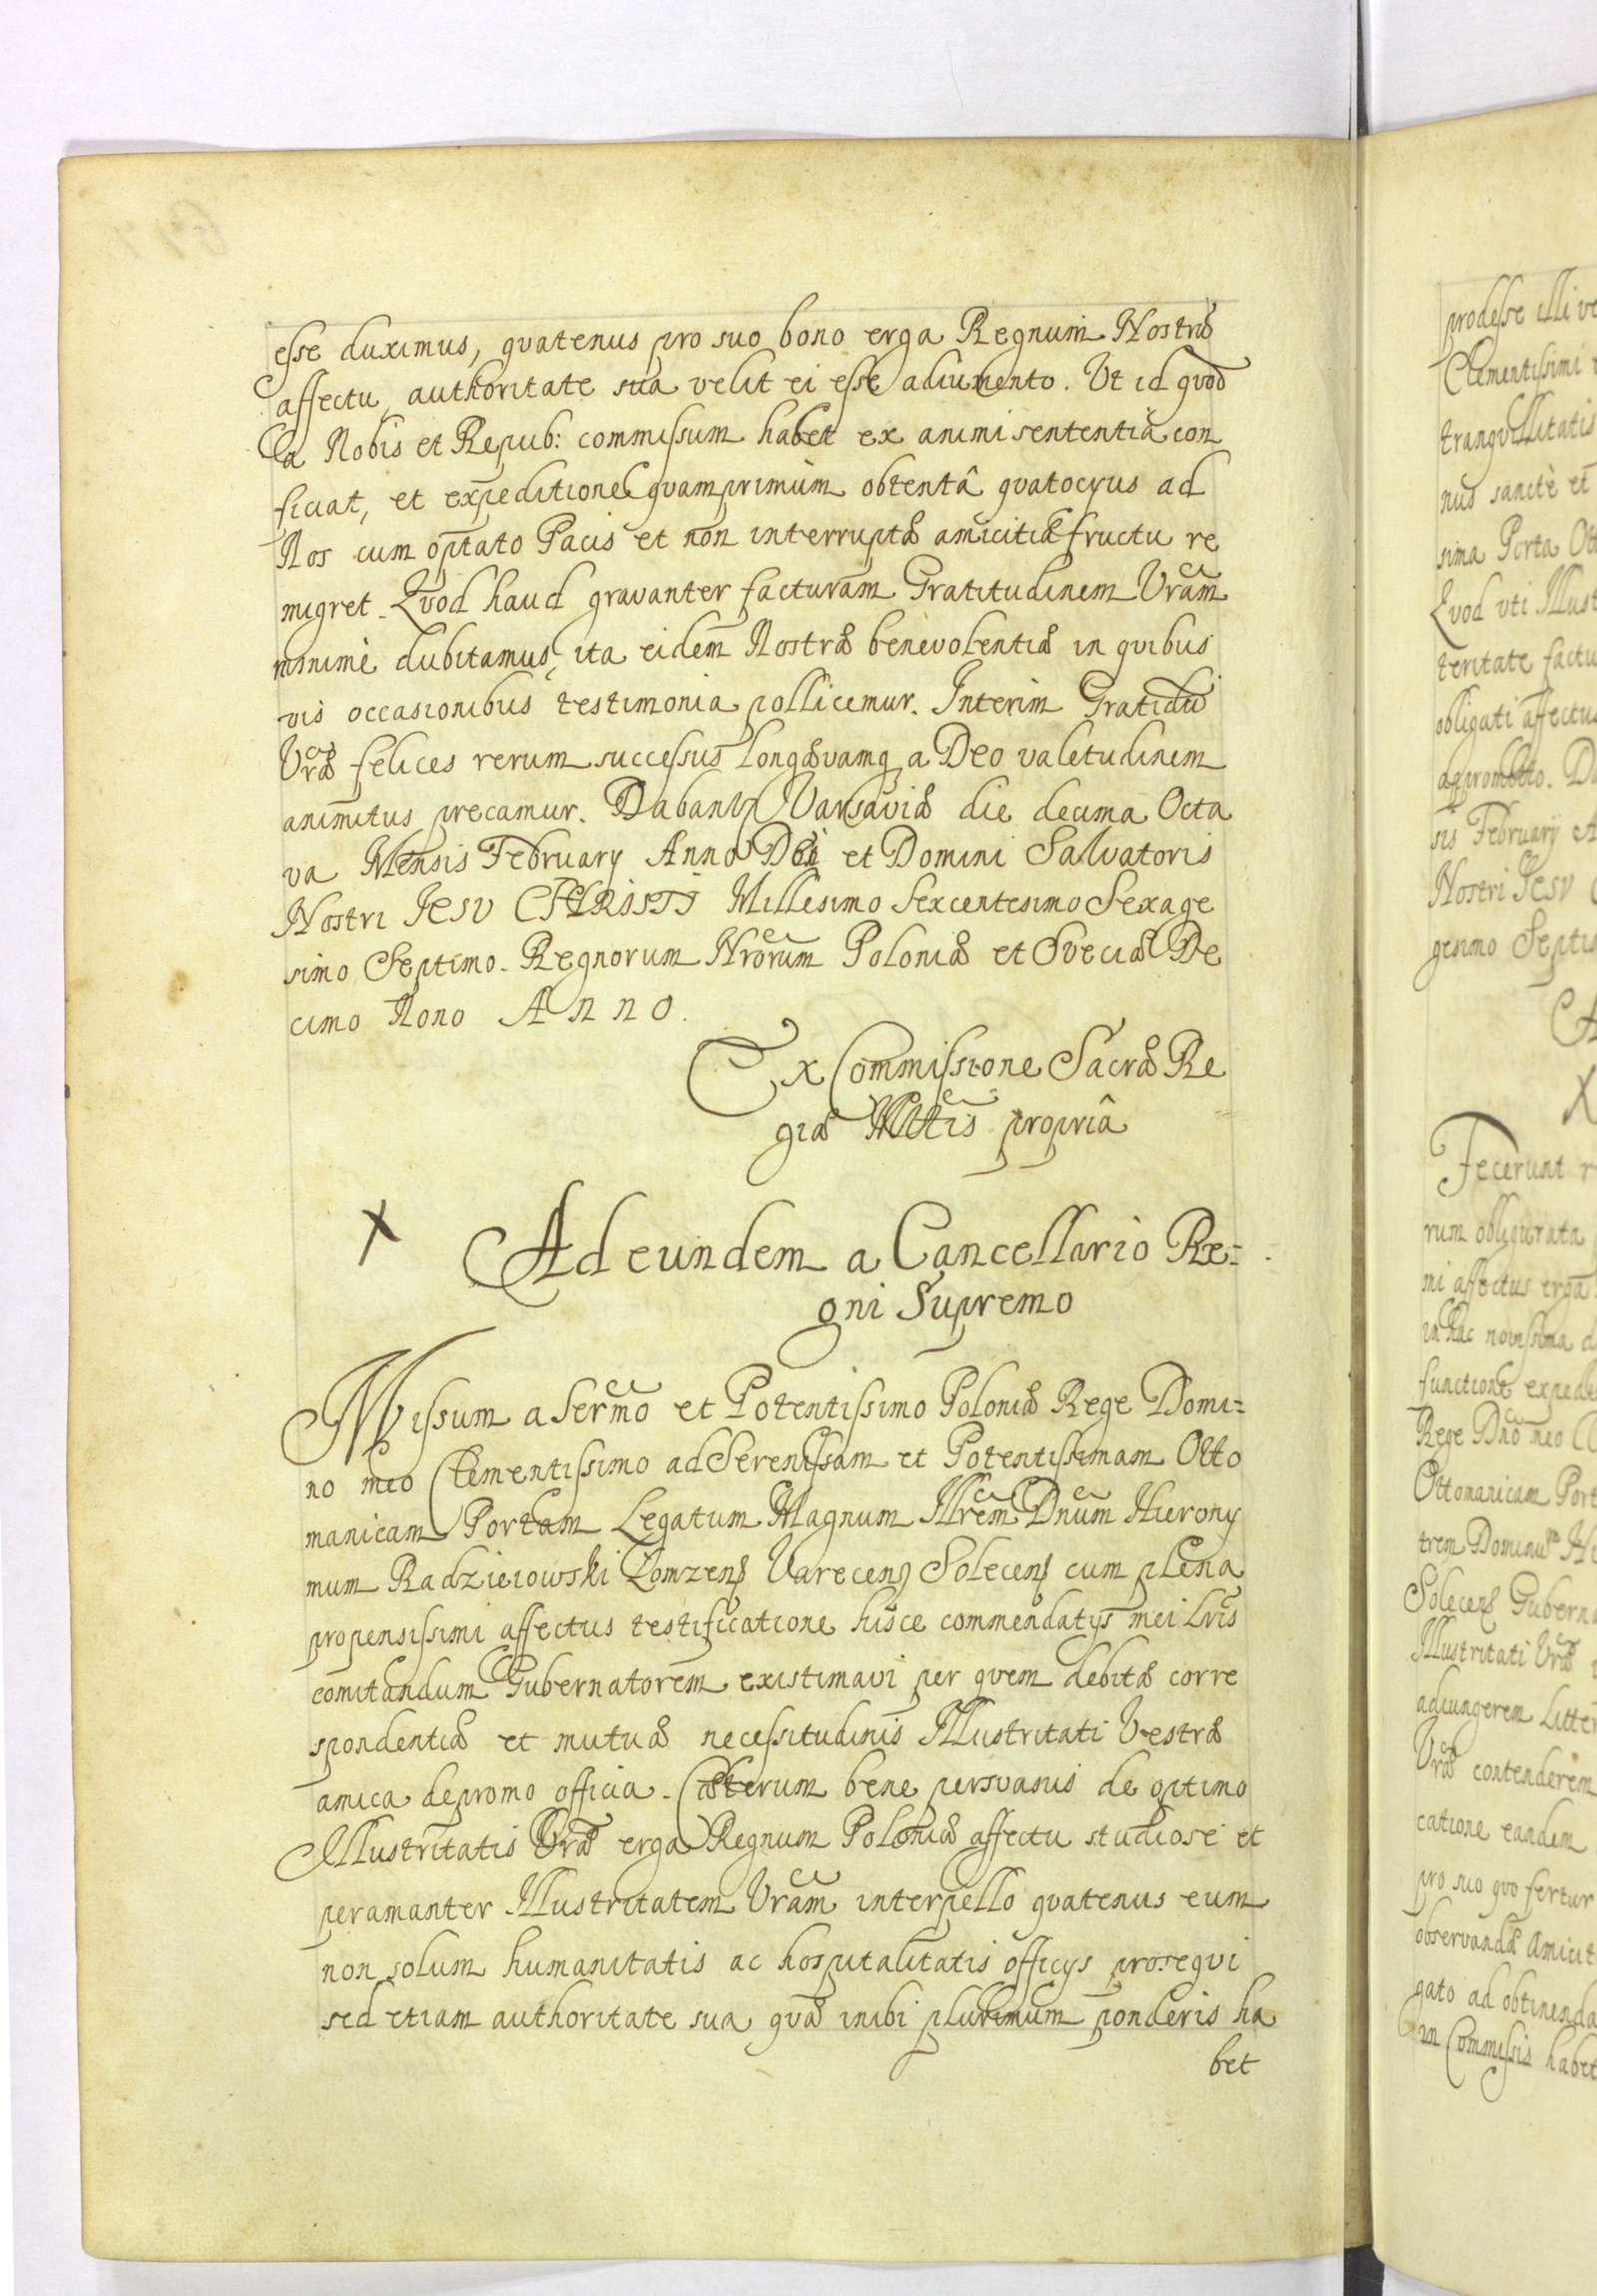 esse duximus, quatenus pro suo bono erga Regnum Nostrũ
affectu, authoritate sua velit ei esse adiumento. Ut id quod
a Nobis et Repub: commissum habet ex animi sententia con
ficiat, et expeditione quamprimùm obtentâ quatocyus ad
Nos cum optato Pacis et non interruptæ amicitiæ fructu re
migret. Quod haud gravanter facturam Gratitudinem Vrãm
minimè dubitamus, ita eidem Nostræ benevolentiæ in quibus
vis occasionibus testimonia pollicemur. Interim Gratidũi
Vræ felices rerum successus longævamq a Deo valetudinem
animitus precamur. Dabantur Varsaviæ die decima Octa
va Mensis February Anno Dei et Domini Salvatoris
Nostri Jesu CHRISTI Millesimo Sexcentesimo Sexage
simo Septimo. Regnorum Nrorum Poloniæ et Sveciæ De
cimo Nono Anno.
Ex Commissione Sacræ Re
giæ Mttis propriâ
X Ad eundem a Cancellario Re=
gni Supremo
Missum a Sermo et Potentissimo Poloniæ Rege Domi=
no meo Clementissimo ad Serenissam et Potentissimam Otto
manicam Portam Legatum Magnum Illrem Dnum Hierony
mum Radzieiowski Lomzens Varecens Solecens cum plena
propensissimi affectus testificatione hisce commendatys mei Lris
comitandum Gubernatorem existimavi per quem debitæ corre
spondentiæ et mutuæ necessitudinis Illustritati Vestræ
amica depromo officia. Cæterum bene persvasus de optimo
Illustritatis Vræ erga Regnum Poloniæ affectu studiose et
peramanter Illustritatem Vrãm interpello quatenus eum
non solum humanitatis ac hospitalitatis officys prosequi
sed etiam authoritate sua quæ inibi plurimum ponderis ha
bet